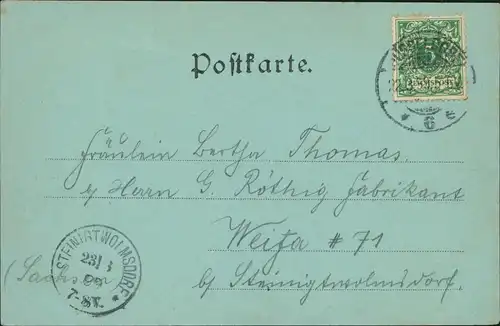 Postkarte.
5
Fräulein Bertha Thomas.
p/ Herrn G. Röthig Fabrikant
Weifa # 71
b/ Steinigtwolmsdorf.
(Sachsen
STEINIGTWOLMSDORF
23/ 3
99
7-8V.
* 6 e